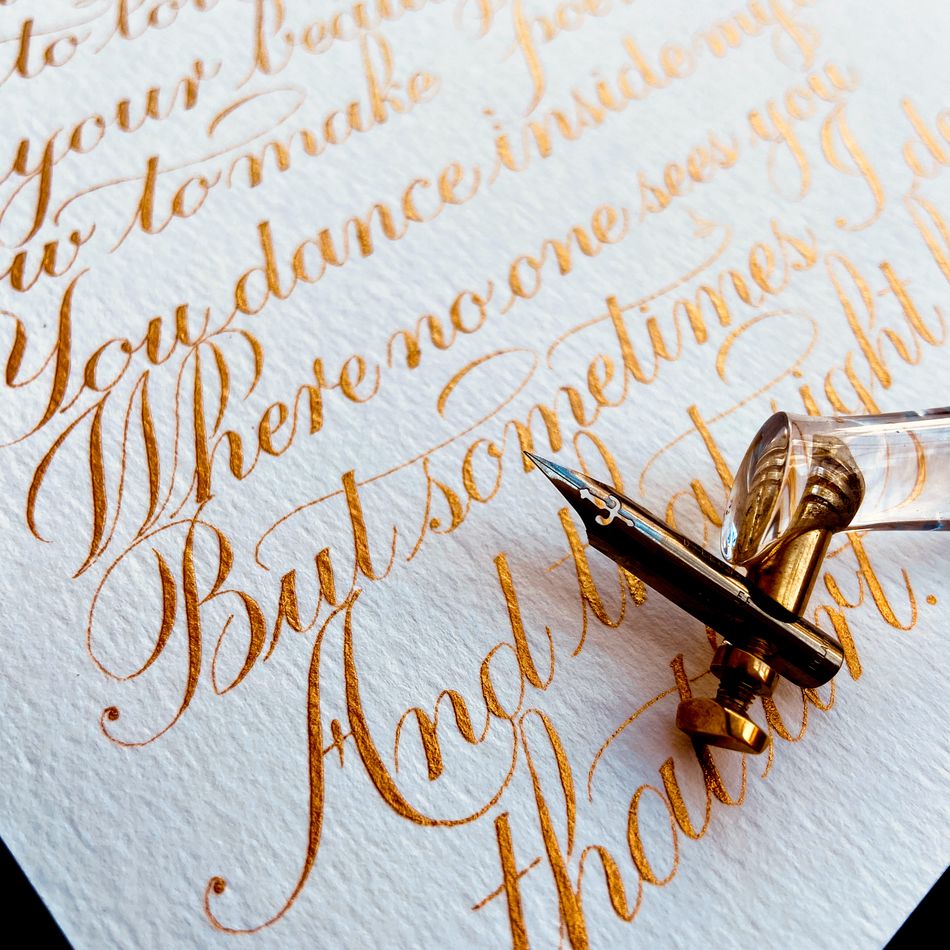 to lov
your beau
w to make poe
You dance inside my
Where no one sees you
But sometimes I d
And that ight